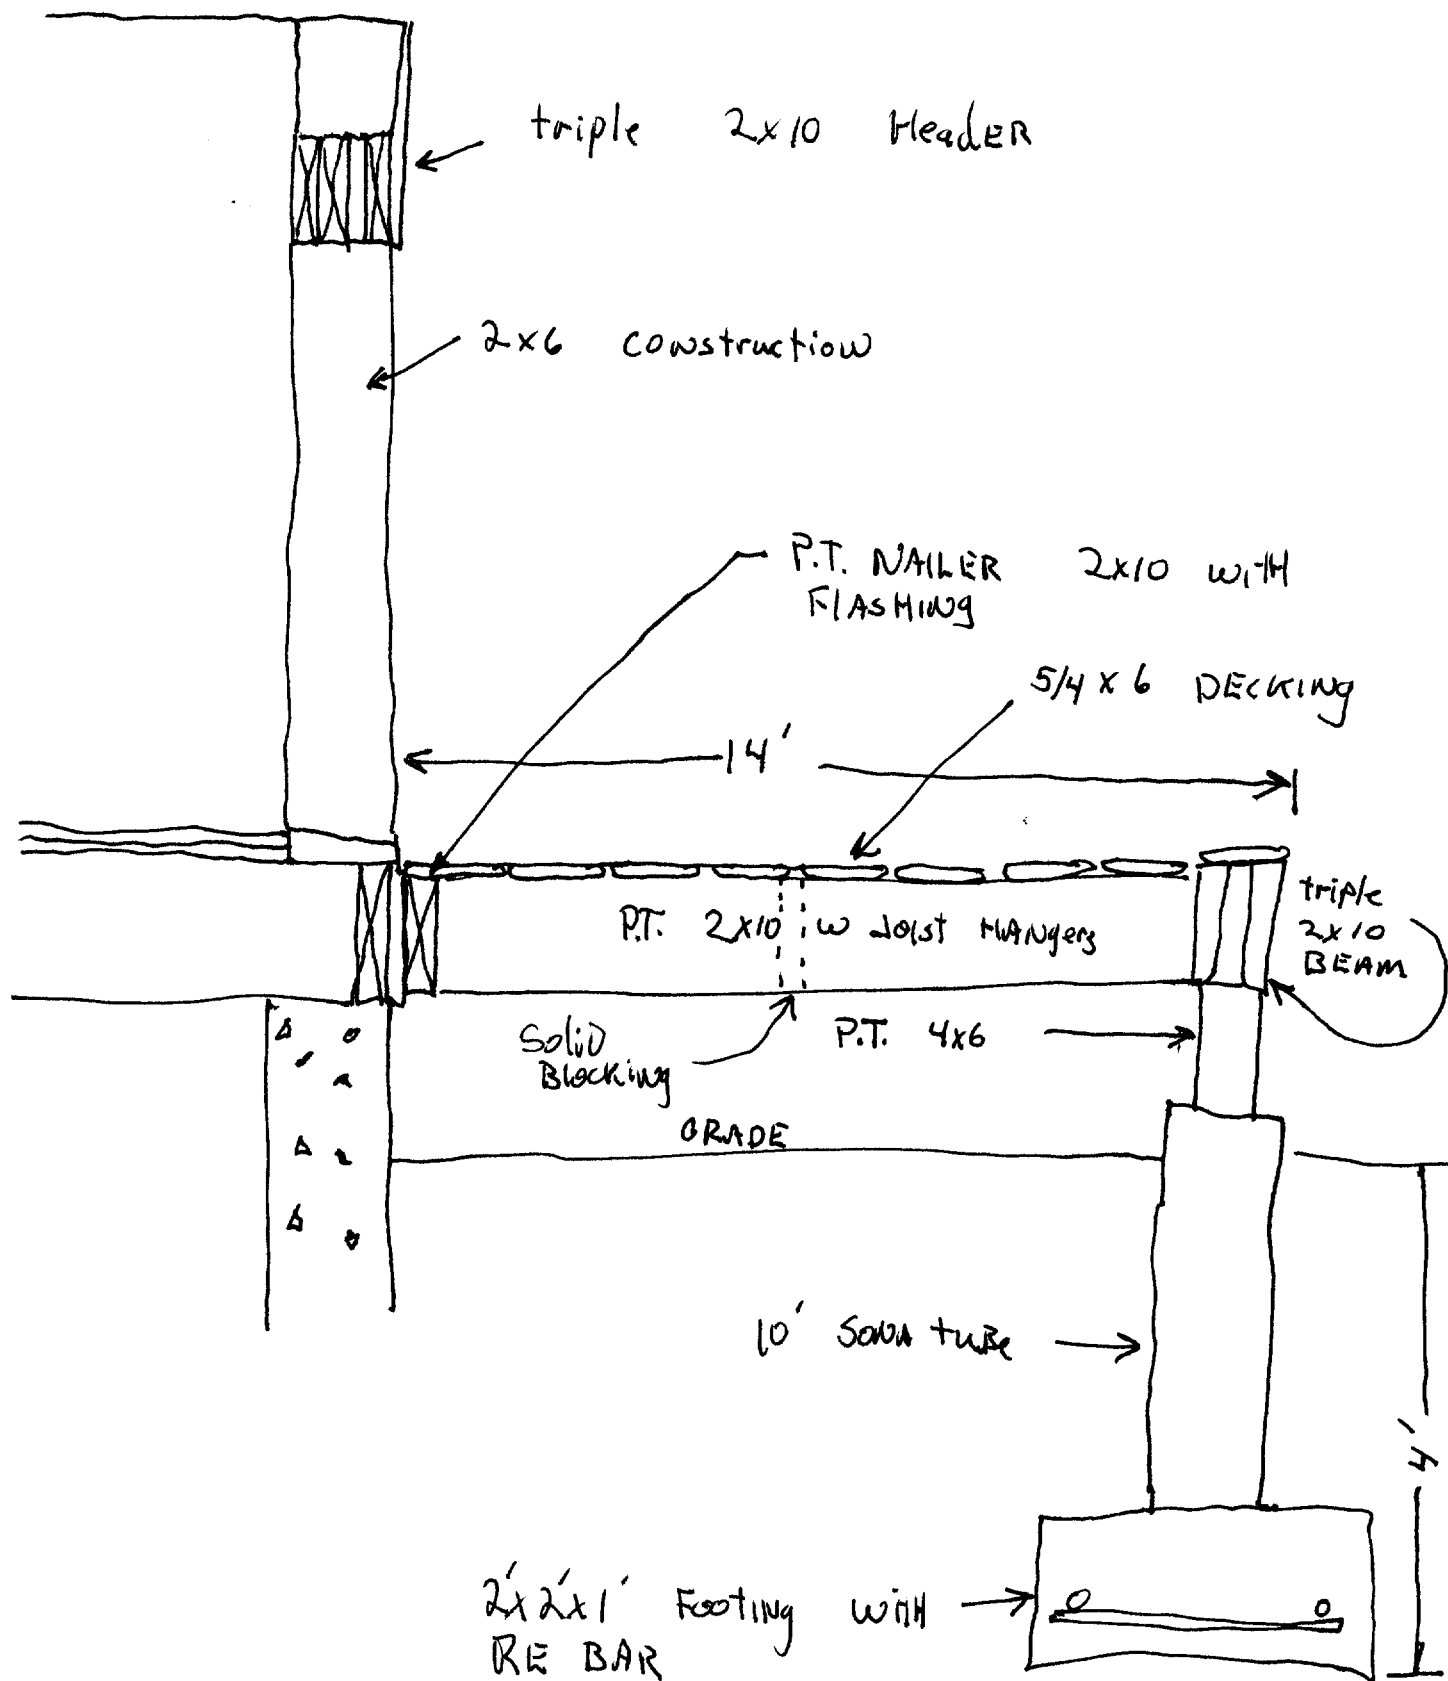 triple 2x10 HeadER
2x6 construction
P.T. NAILER 2x10 WITH
FLASHING
5/4 x 6 DECKING
14'
triple
2x10
BEAM
P.T. 2x10 w Joist HANgers
Solid
Blocking
P.T. 4x6
GRADE
10' SONA tuBe
4'
2'x2'x1' Footing WITH
RE BAR